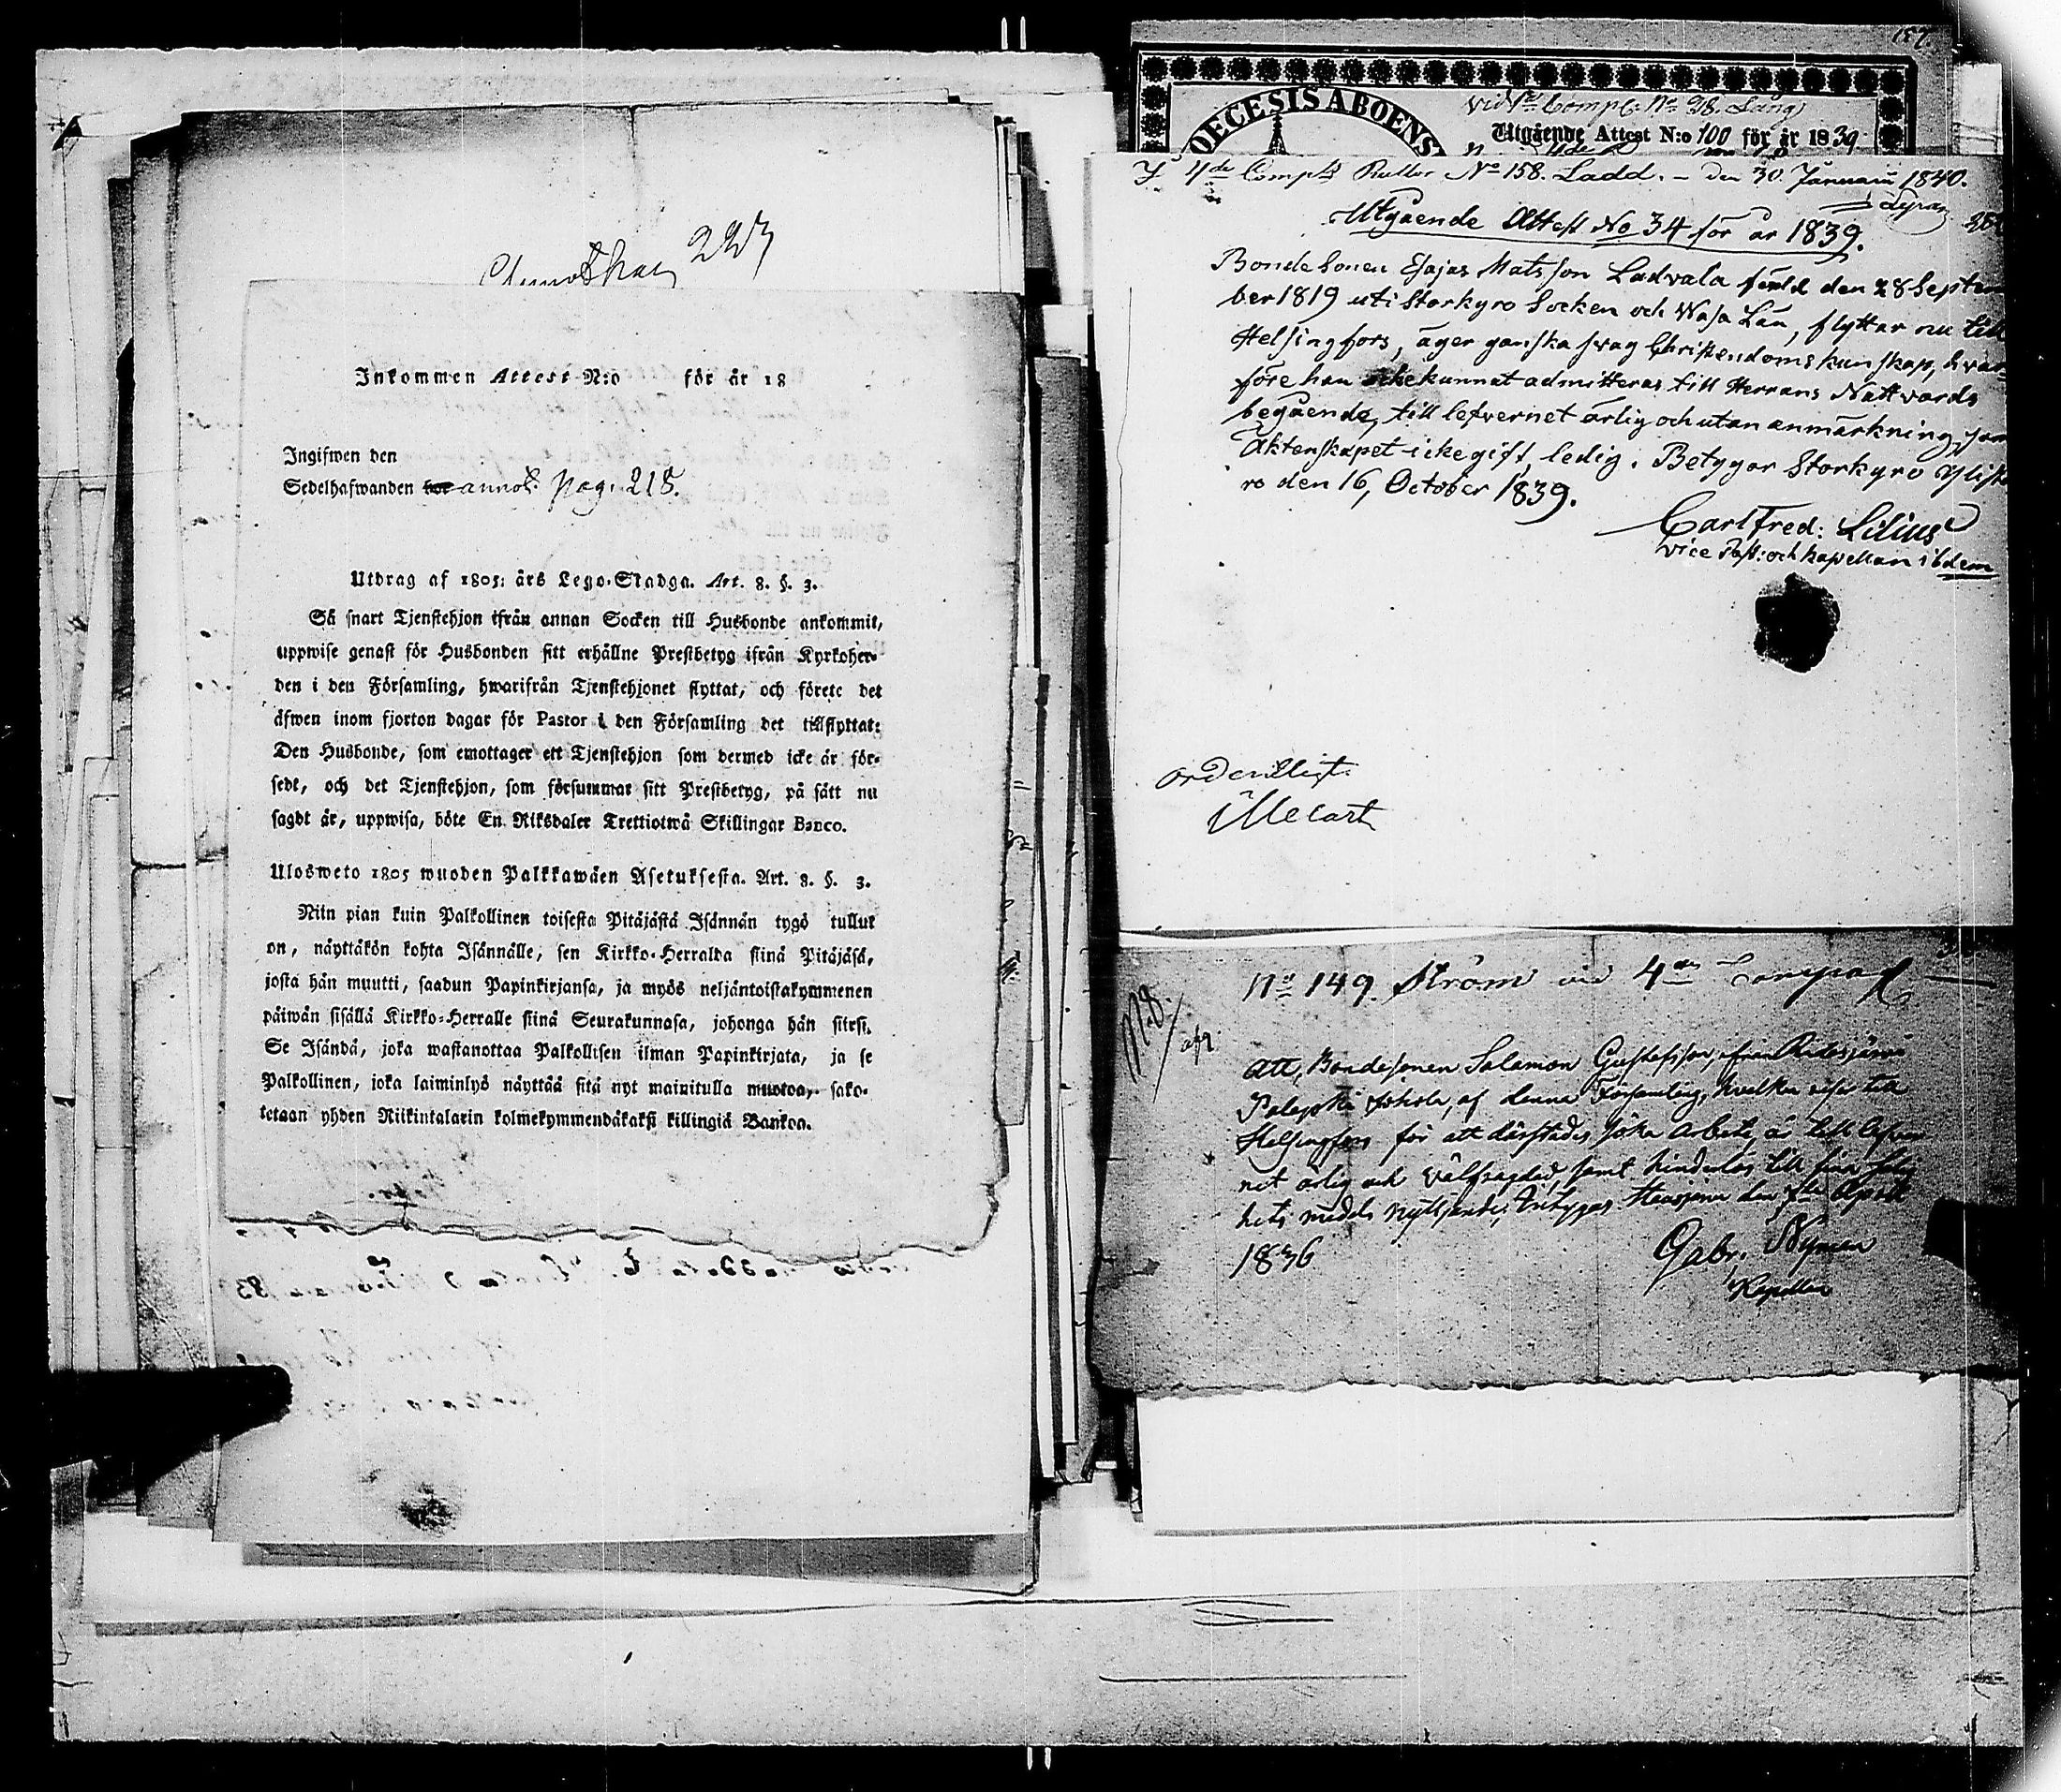 223
Inkommen Attest N:o för år 18
Ingifwen den
Sedelhafwanden annot. pag. 218.
Utdrag af 1805: års Lego-Stadga. Art. 8. §. 3.
Så snart Tjenstehjon ifrån annan Socken till Husbonde ankommit,
uppwise genast för Husbonden sitt erhållne Prestbetyg ifrån Kyrkoher-
den i den Församling, hwarifrån Tjenstehjonet flyttat, och förete det
äfwen inom fjorton dagar för Pastor i den Församling det tillflyttat:
Den Husbonde, som emottager ett Tjenstehjon som dermed icke är för-
sedt, och det Tjenstehjon, som försummar sitt Prestbetyg, på sätt nu
sagdt är, uppwisa, böte En Riksdaler Trettiotwå Skillingar Banco.
Ulosweto 1805 wuoden Palkkawäen Asetuksesta. Art. 8. §. 3.
Niin pian kuin Palkollinen toisesta Pitäjästä Isännän tygö tullut
on, näyttäkön kohta Isännälle, sen Kirkko-Herralda siinä Pitäjäsä,
josta hän muutti, saadun Papinkirjansa, ja myös neljäntoistakymmenen
päiwän sisällä Kirkko-Herralle siinä Seurakunnasa, johonga hän siirsi.
Se Isändä, joka wastanottaa Palkollisen ilman Papinkirjata, ja se
Palkollinen, joka laiminlyö näyttää sitä nyt mainitulla muotoa, sako-
tetaan yhden Riikintalarin kolmekymmendäkaksi killingiä Bankoa.
157.
DECESIS ABOENS
vid Comp: No 98. Lång
Utgående Attest N:o 100 för år 1839
4de Comp Rullor No 158. Ladd. - den 30. Januarii 1840.
Utgående Attest No 34 för år 1839.
Bonde Sonen Esajas Matsson Ladvala född den 28 Septem
ber 1819 uti Storkyro Socken och Wasa Län, flyttar nu till
Helsingfors, äger ganska swag Christendomskunskap, hvar-
före han icke kunnat admitteras till Herrans Nattvards
begående, till lefvernet ärlig och utan anmärkning, som
Äktenskapet icke gift, ledig. Betygar Storkyro Ylista
ro den 16, October 1839.
Carl Fred: Lilius
Vice Past: och kapellan ibdem
ordentligt.
Mecart
No 149. Ström vid 4de Compag
att, Bondesonen Salamon Gustafsson, ifrån
af denna Församling, hvilken reser till
Helsingfors för att därstädes söka arbete, är till lefver
net ärlig och välfragdad, samt hinderlös till sina salig
hets medels nytjande; betygas den April
1836
Gabr. Nyman
Kapellan